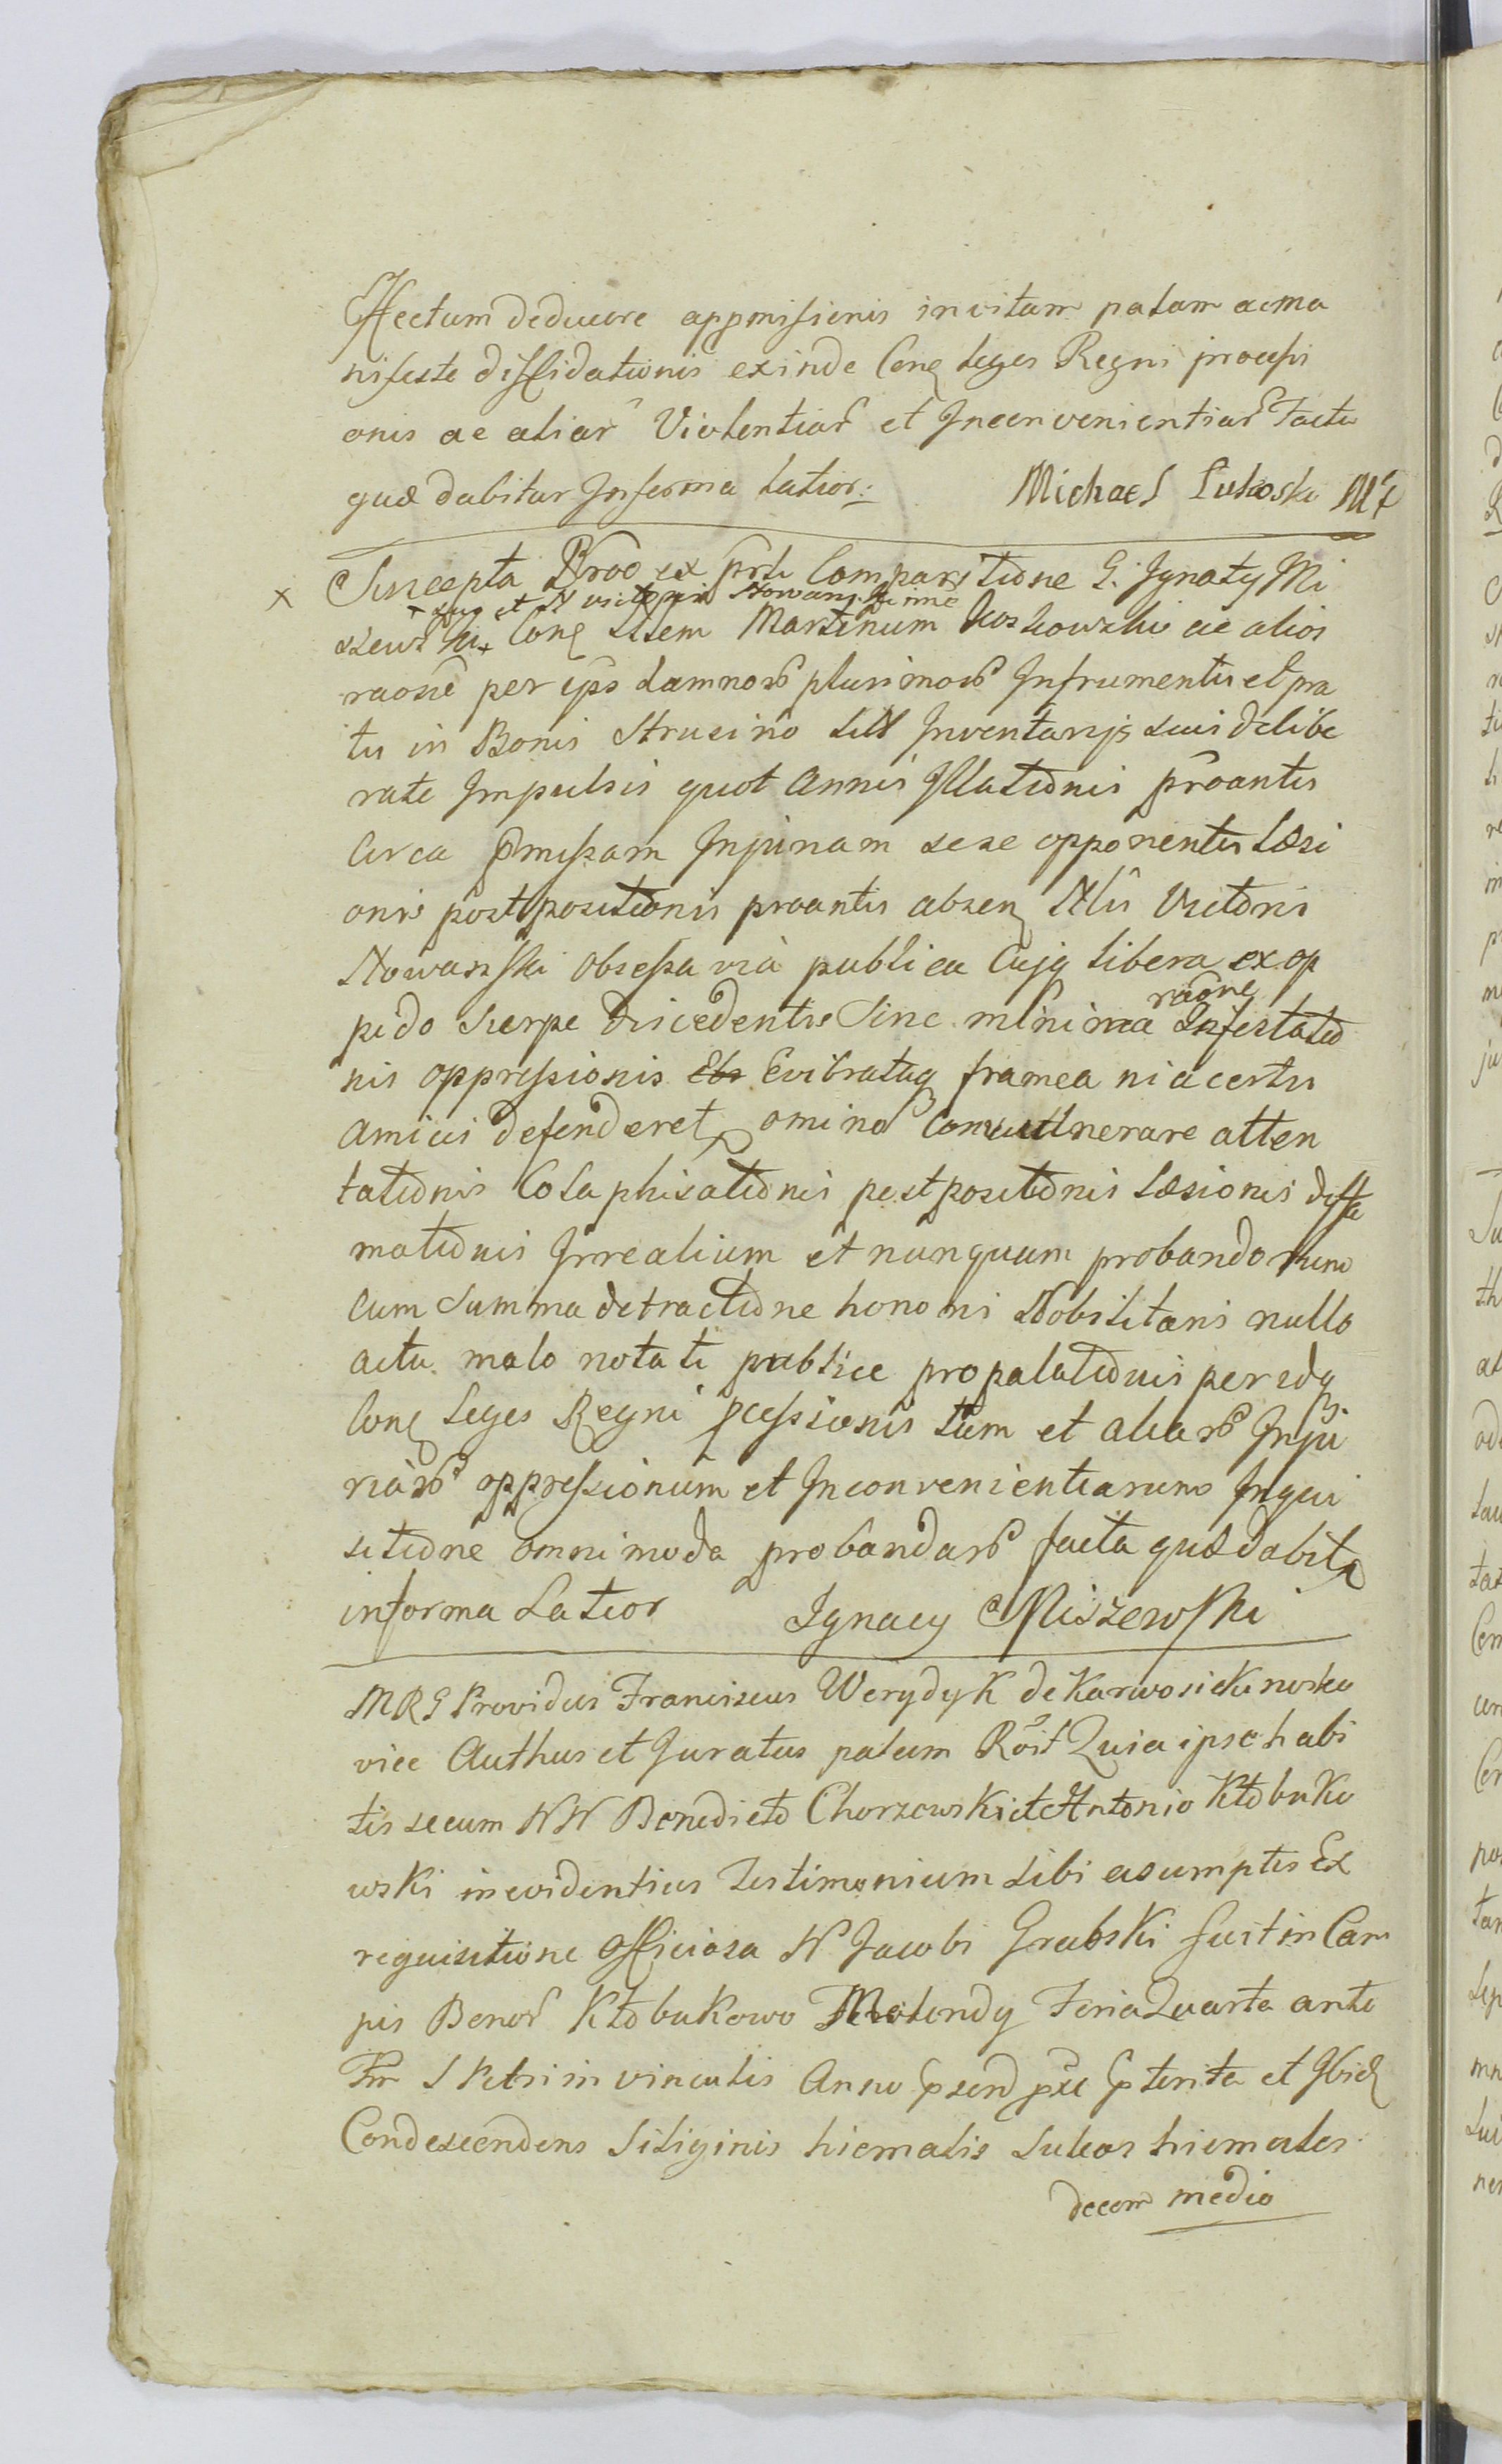 Effectum deducere appromisionis invitam palam ac ma
nifeste diffidationis exinde Conq leges Regni procefsi
onis ac aliar Violentiar et Inconvenientiar Facta
quæ dabitur Informa latior. Michael Lukoski MP
x Suscepta Proo ex prti Comparitione G. Ignaty Mi
+ suo et N Victoris Nowansski nne
szewski + Conq Lttem Martinum Koszkowski ac alios
raone per ipso damnor plurimor Infrumentis et pra
tis in Bonis Strucino Litt Inventarijs suis delibe
rate Impulsis quot Annis Illationis proantis
Circa pmissam Injuriam sese opponentis Læsi
onis postpositionis proantis absenq Nlis Victoris
Nowansski Obsessa via publica Cujq libera ex op
raone
pido Sierpc discedentis Sine minima Infestatio
nis oppressionis Evibrataq framea ni a certis
Amicis defenderet omino Convullnerare atten
tationis Colaphisationis postpositionis Læsionis diffa
mationis Irrealium et nunquam probandorum
Cum Summa detractione honori Nobilitaris nullo
actu malo notati publice propalationis per idq
Conq Leges Regni pcessionis tum et aliar Inju
riar oppressionum et Inconvenientiarum Inqui
sitione omnimoda probandar facta quæ dabitr
informa Latior Ignacy Miszewski
MRG Providus Franciscus Werydyk de Karwosieki noska
vice Authus et Juratus palam Roit Quia ipse habi
tis secum NN Benedicto Chorzewski et Antonio Kłobuko
wski in evidentius Testimonium sibi asumptis Ex
requisitione Officiosa N Jacobi Grabski fuit in Cam
pis Bonor Kłobukowo Feria Quarta ante
Fm S Petri in vinculis Anno psend pxe pterita et Ibidq
Condescendens Siliginis hiemalis Sulcos hiemales
decem medio